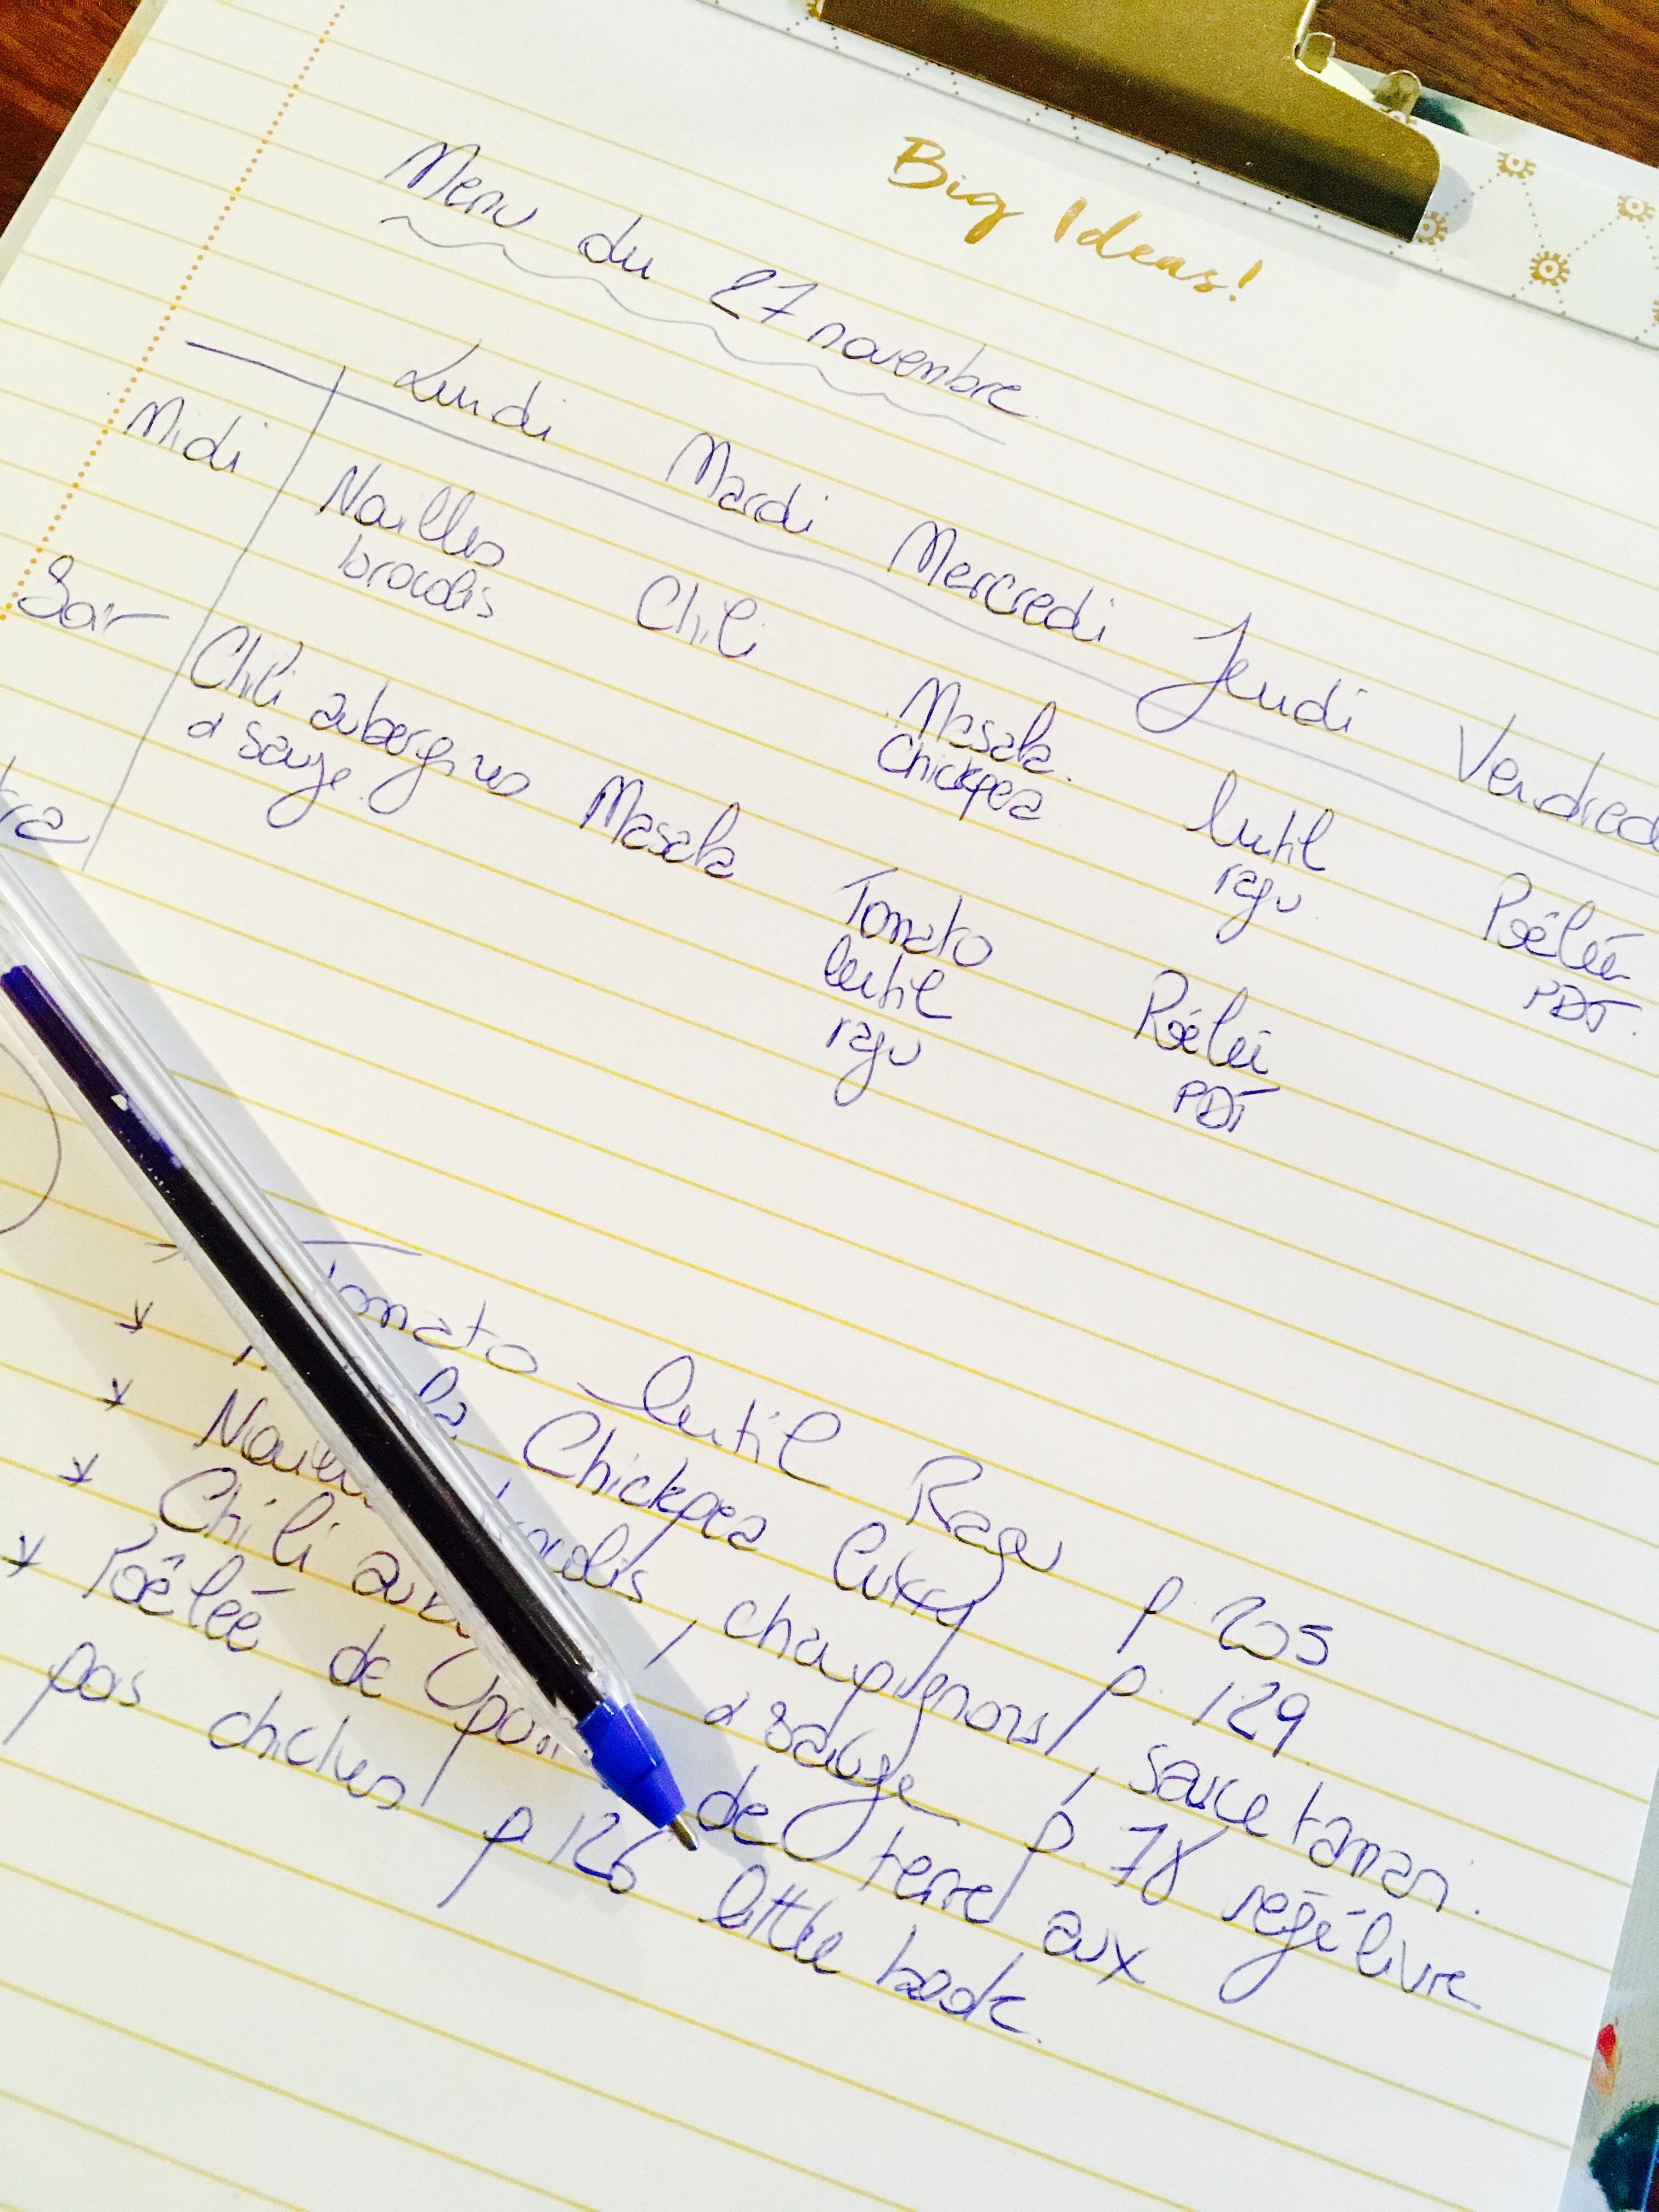 Big Ideas!
Menu du 27 novembre
Lundi Mardi Mercredi Jeudi Vendred
Midi Nouilles Chili Masala lentil Poêlée
brocolis Chickpea ragu PDT.
Soir Chili aubergines Masala Tomato Poêlée
& sauge. lentil PDT
ragu
Tomato lentil Ragu p. 205
Chickpea Curry p. 129
brocolis, champignons, sauce tamari.
Chili & sauge p. 78 végé livre
Poêlée de de terre aux
pois chiches p 126 little book.